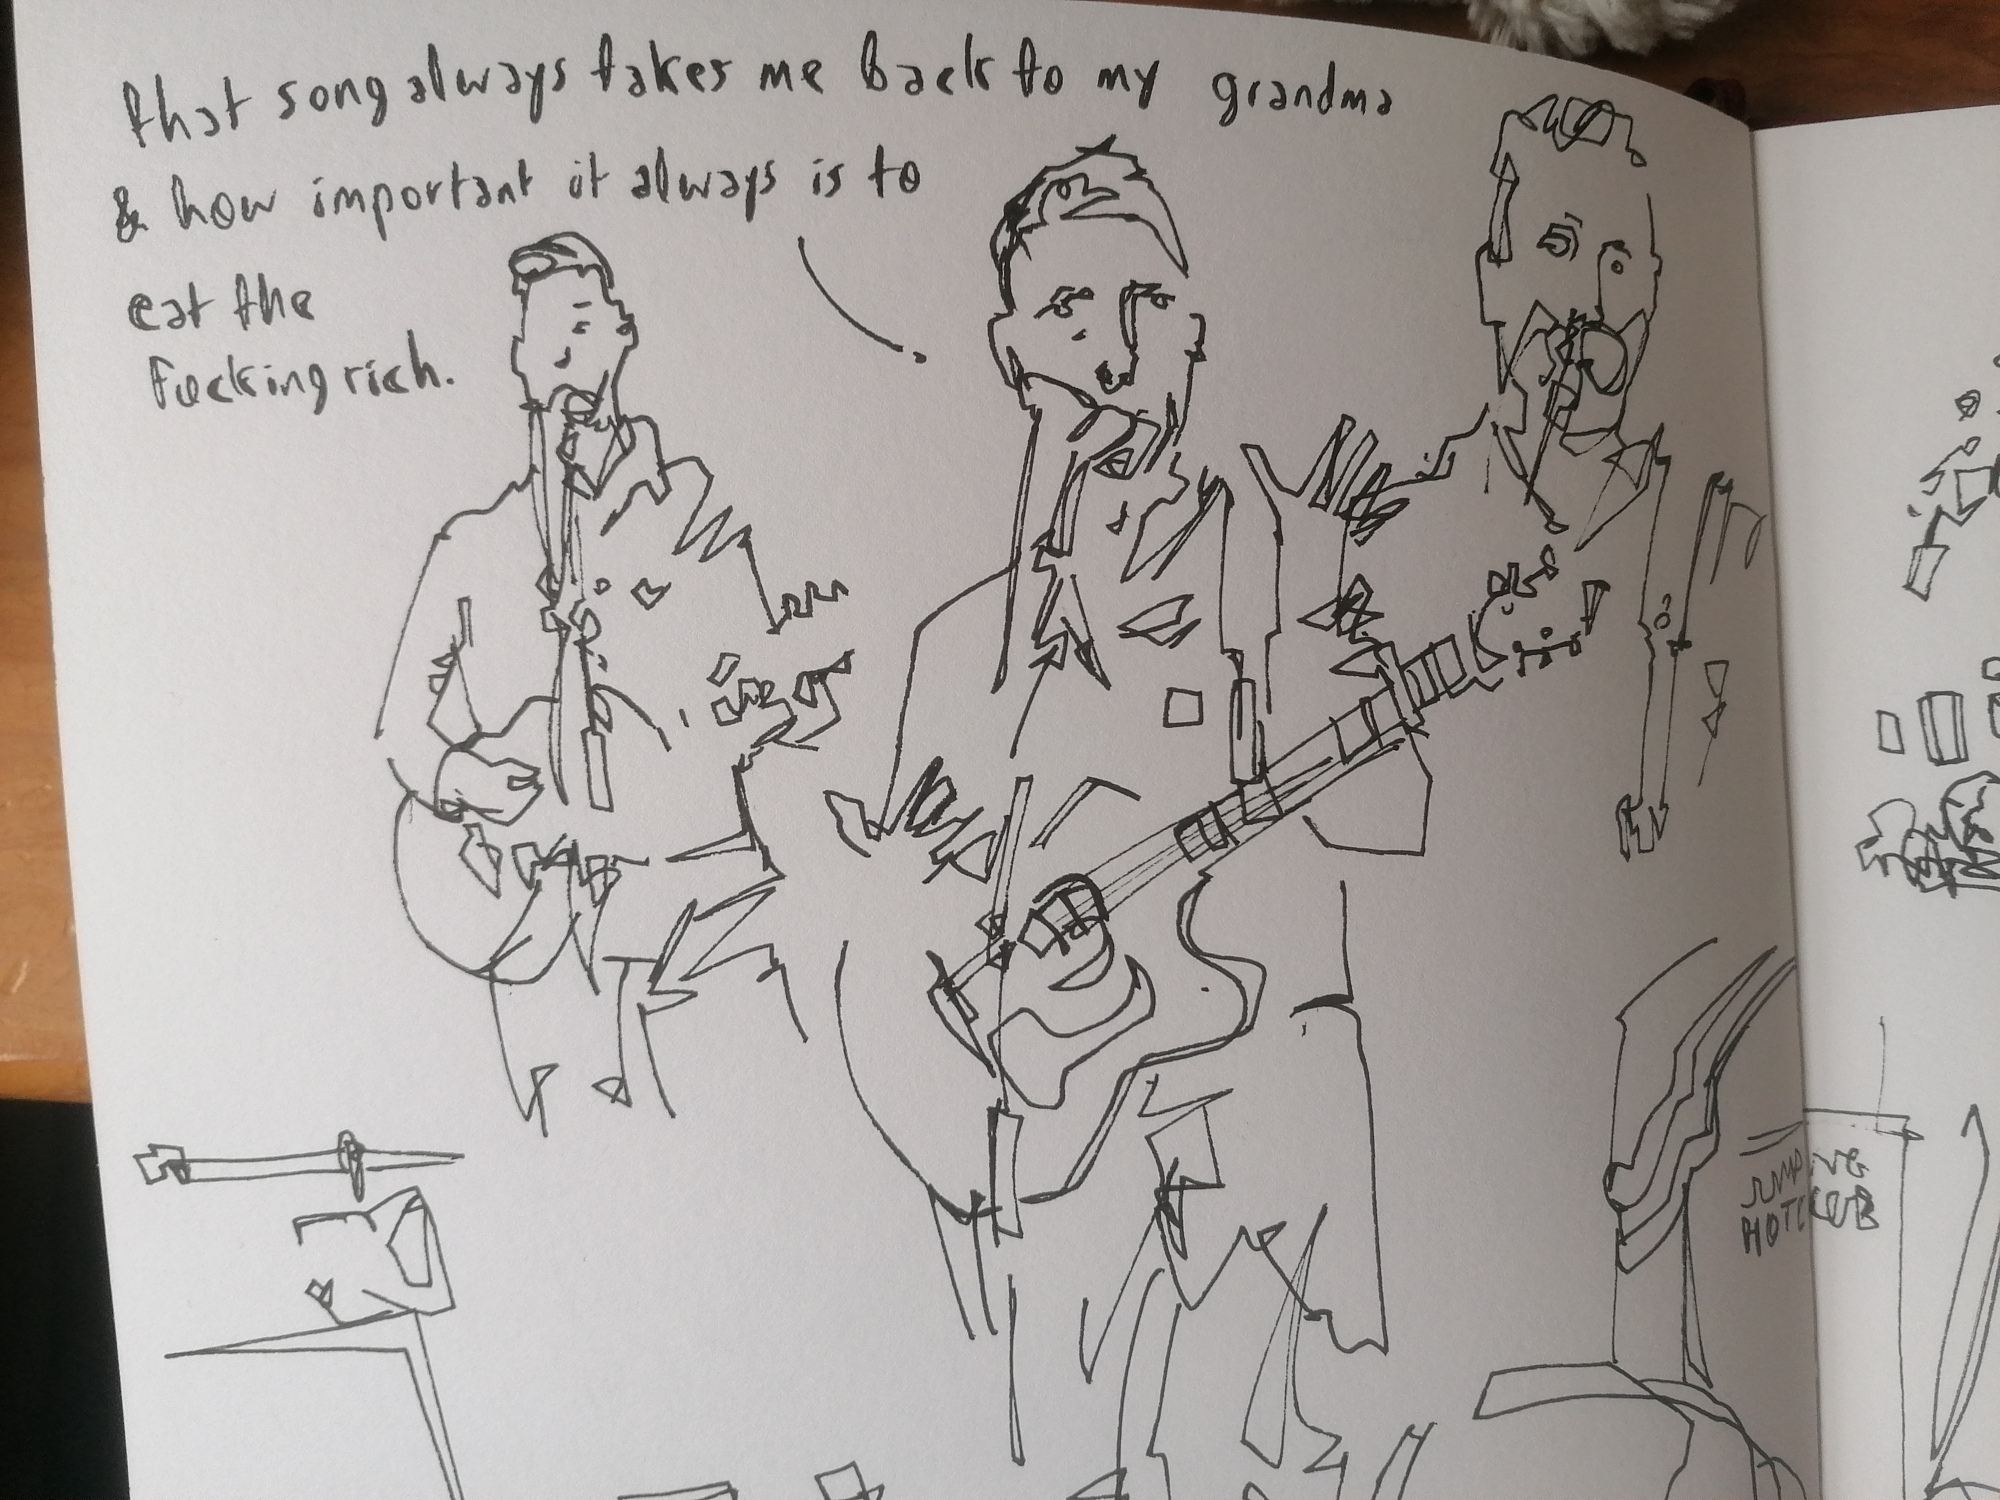 that song always takes me back to my grandma
& how important it always is to
eat the
fucking rich.
HOT CLUB